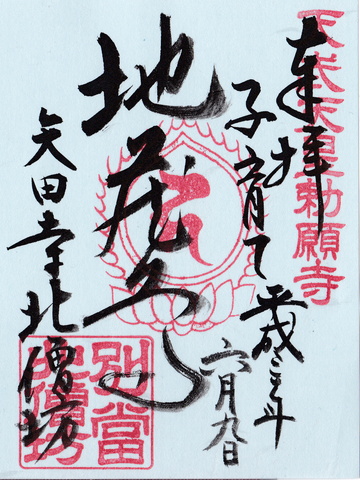 天武天皇勅願寺
奉拝
子育て
平成二十年
六月九日
地蔵
矢田寺北僧坊
別當
北僧坊